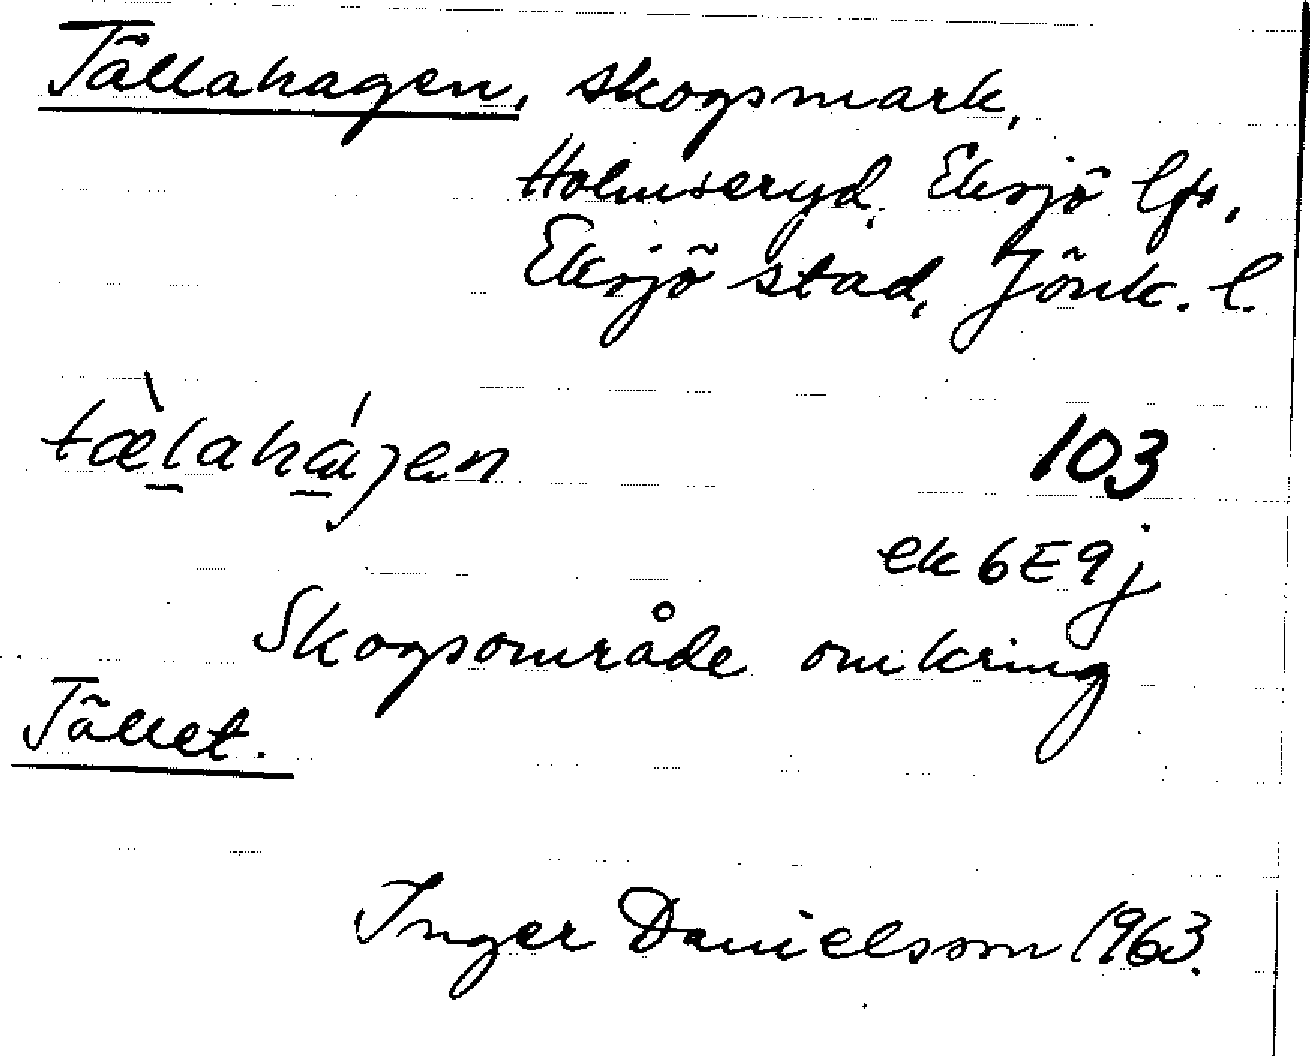 Tällahagen, skogsmark,
Holmseryd, Eksjö lfs,
Eksjö stad, Jönk. l.
tæ̀lahájen
103
ek 6E9j
Skogsområde omkring
Tället.
Inger Danielsson 1963.